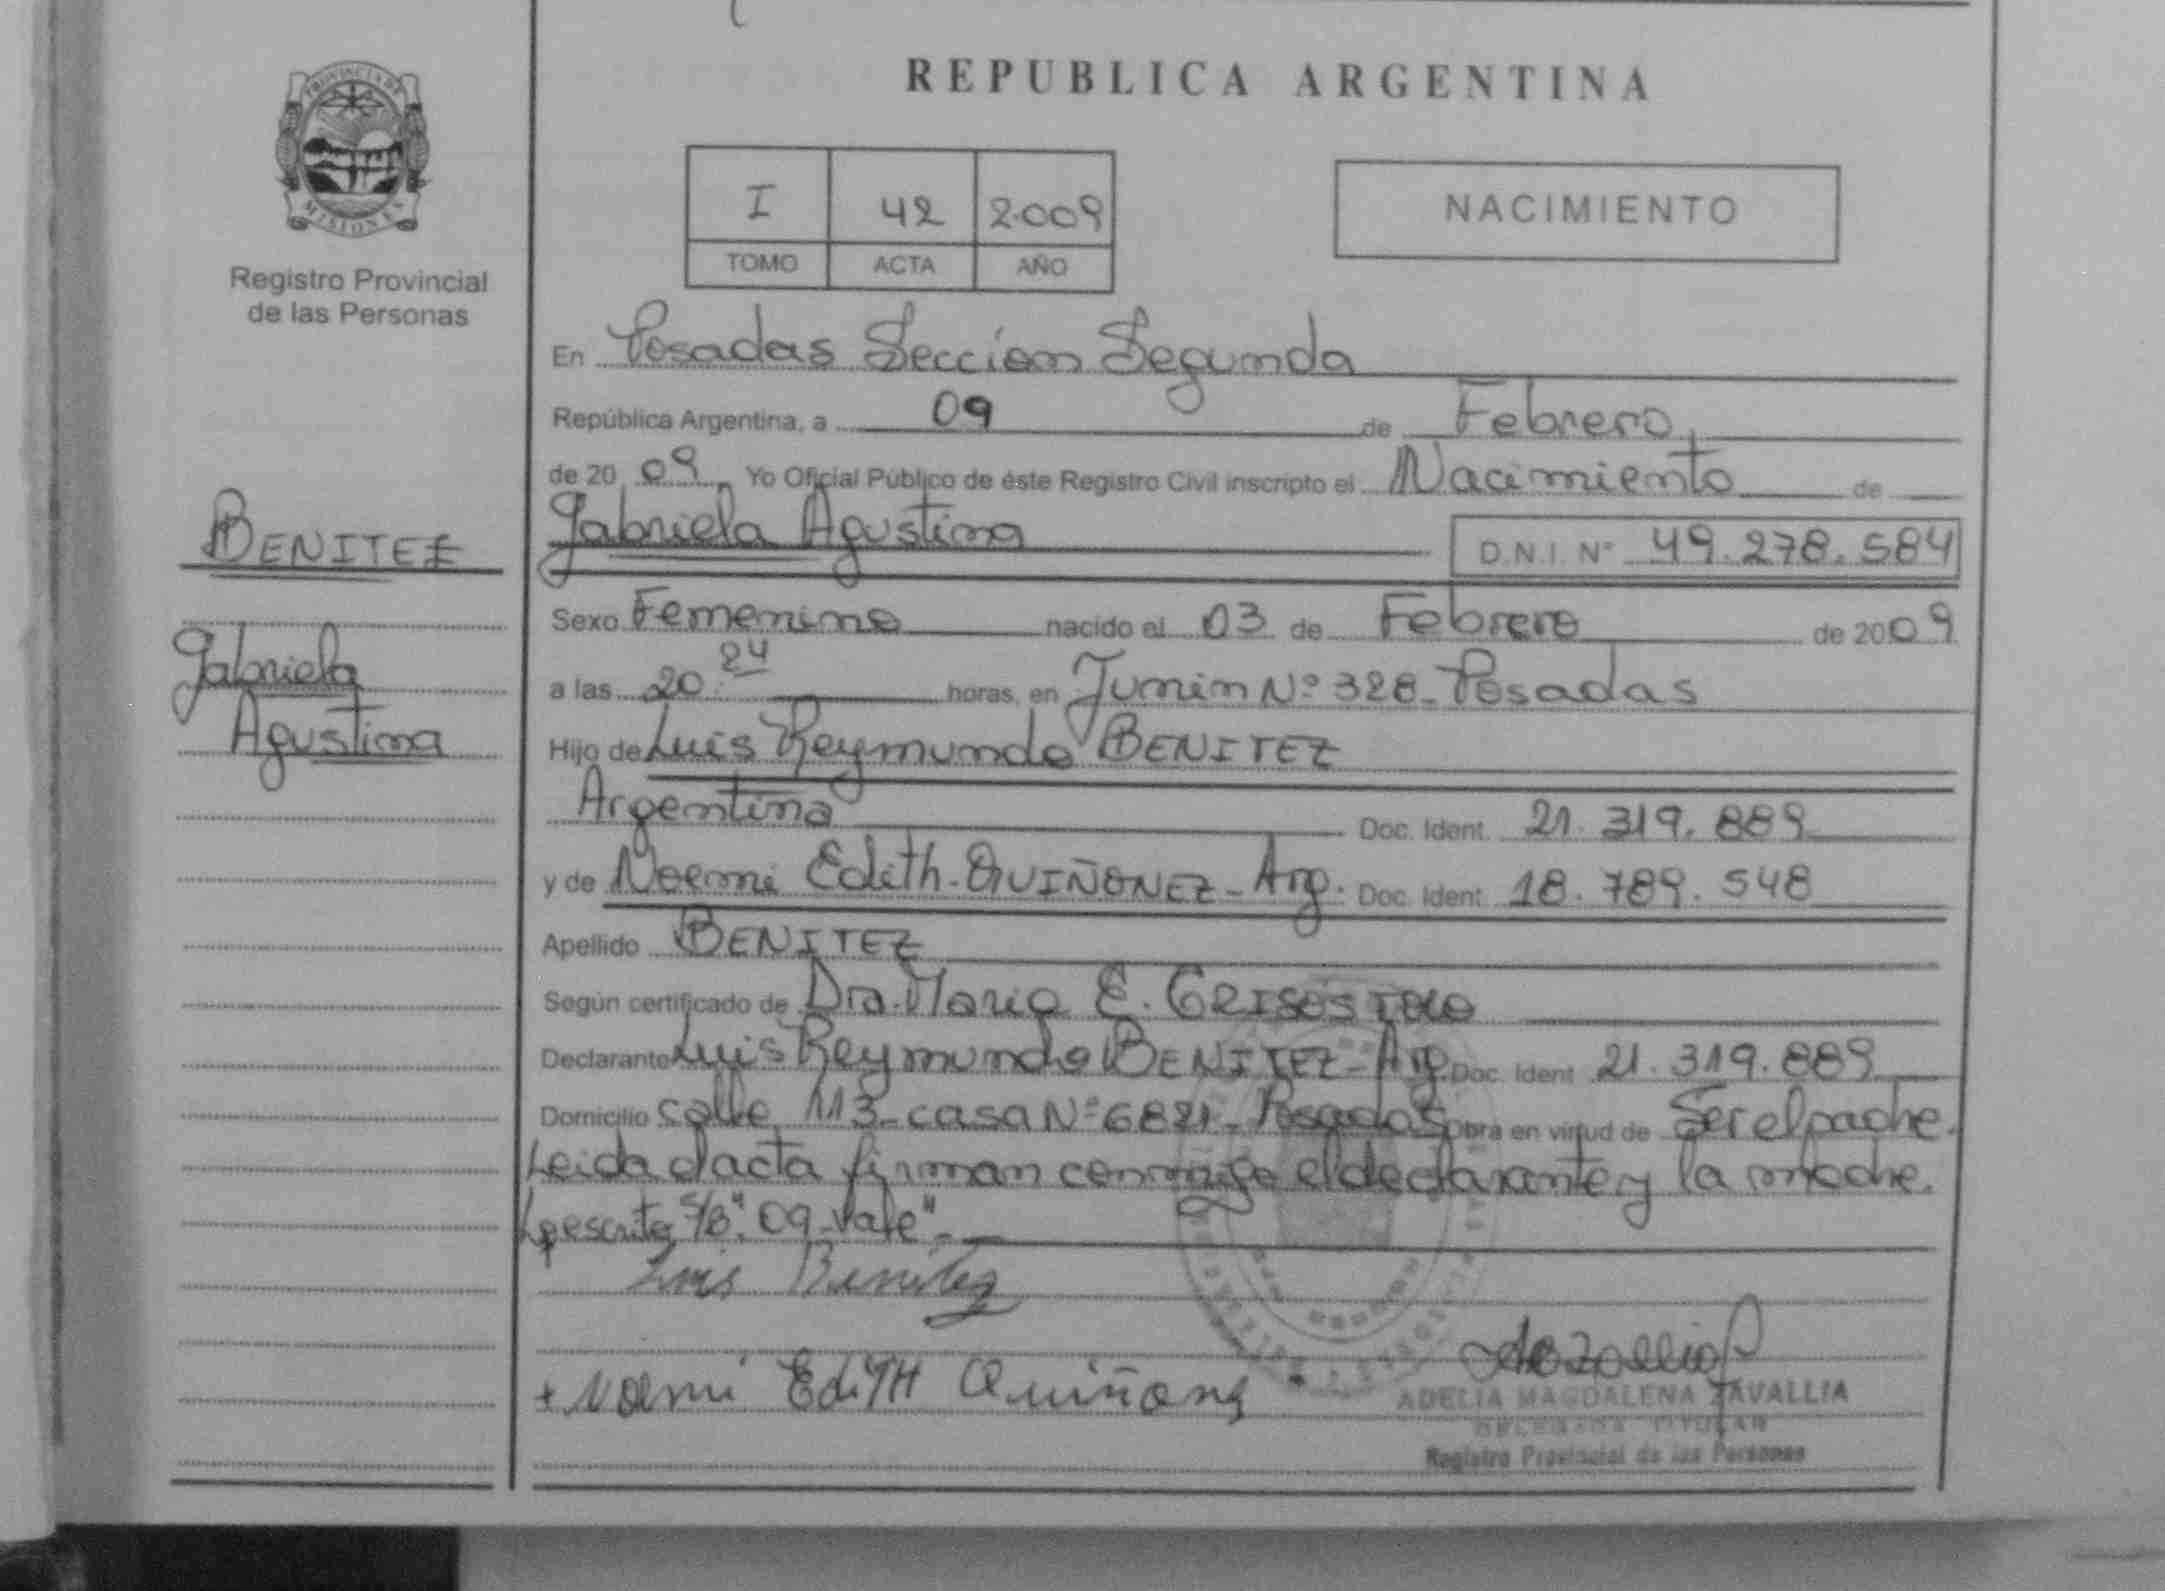 PROVINCIA DE
MISIONES
Registro Provincial
de las Personas
BENITEZ
Gabriela
Agustina
REPUBLICA ARGENTINA
I 42 2009
TOMO ACTA AÑO
NACIMIENTO
En Posadas Sección Segunda
República Argentina, a 09 de Febrero
de 20 09 Yo Oficial Público de éste Registro Civil inscripto el Nacimiento de
Gabriela Agustina D.N.I. Nº 49.278.584
Sexo Femenino nacido el 03 de Febrero de 2009
a las 20:24 horas, en Junin Nº 328 - Posadas
Hijo de Luis Reymundo BENITEZ
Argentina Doc. Ident. 21.319.889
y de Noemi Edith - QUIÑONEZ - Arg. Doc. Ident. 18.789.548
Apellido BENITEZ
Según certificado de Dra. Maria E. GRISOSTOLO
Declarante Luis Reymundo BENITEZ - Arg. Doc. Ident. 21.319.889
Domicilio calle 113 - casa Nº 6821 - Posadas Obra en virtud de Ser el padre.
Leida el acta firman conmigo el declarante y la madre.
S/B: "09 - Vale" -
Luis Benitez
+ Noemi EdiTH Quiñonez
ADELIA MAGDALENA ZAVALLIA
DELEGADA TITULAR
Registro Provincial de las Personas